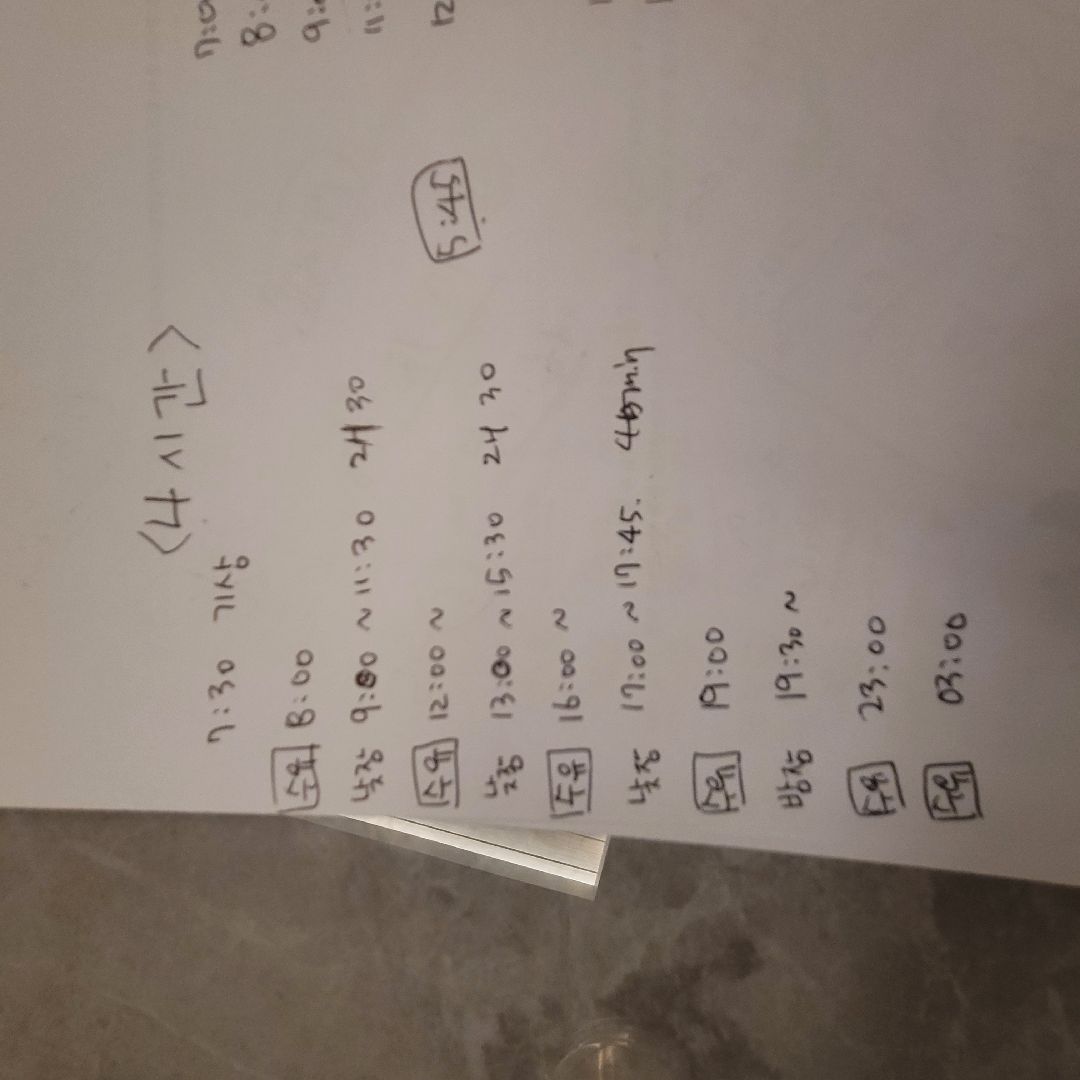 <4시간>
7:30 기상
수유 8:00
낮잠 9:00 ~ 11:30 2H 30
수유 12:00 ~
낮잠 13:00 ~ 15:30 2H 30
5:45
수유 16:00 ~
낮잠 17:00 ~ 17:45. 45min
수유 19:00
밤잠 19:30 ~
수유 23:00
수유 03:00